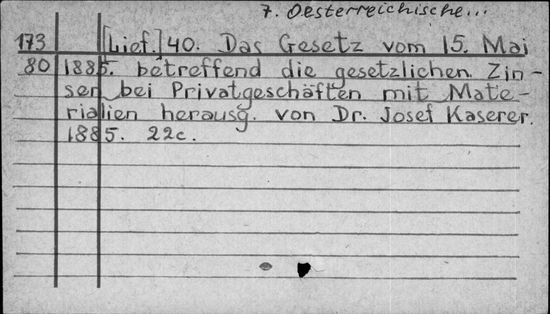 7. Oesterreichische...
173 [Lief.] 40. Das Gesetz vom 15. Mai
80 1885. betreffend die gesetzlichen Zin-
sen bei Privatgeschäften mit Mate-
rialien herausg. von Dr. Josef Kaserer.
1885. 22c.